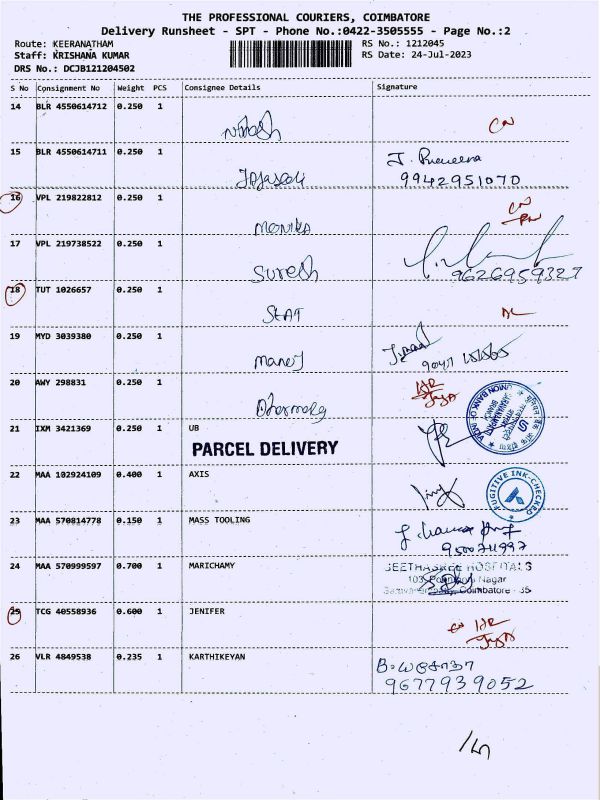 THE PROFESSIONAL COURIERS, COIMBATORE
Delivery Runsheet - SPT - Phone No.:0422-3505555 - Page No.:2
Route: KEERANATHAM RS No.: 1212045
Staff: KRISHANA KUMAR RS Date: 24-Jul-2023
DRS No.: DCJB121204502
S No Consignment No Weight PCS Consignee Details Signature
14 BLR 4550614712 0.250 1
15 BLR 4550614711 0.250 1
J. Praveena
9942951070
16 VPL 219822812 0.250 1
MONIKA
17 VPL 219738522 0.250 1
Suresh 9626959327
18 TUT 1026657 0.250 1
19 MYD 3039380 0.250 1
Manoj
20 AWY 298831 0.250 1
21 IXM 3421369 0.250 1 UB
PARCEL DELIVERY
UNION BANK OF
22 MAA 102924109 0.400 1 AXIS
FUGITIVE INK-CHECKED
23 MAA 570814778 0.150 1 MASS TOOLING
24 MAA 570999597 0.700 1 MARICHAMY
HOSPITALS
103, Nagar
Coimbatore - 35
25 TCG 40558936 0.600 1 JENIFER
26 VLR 4849538 0.235 1 KARTHIKEYAN
9677939052